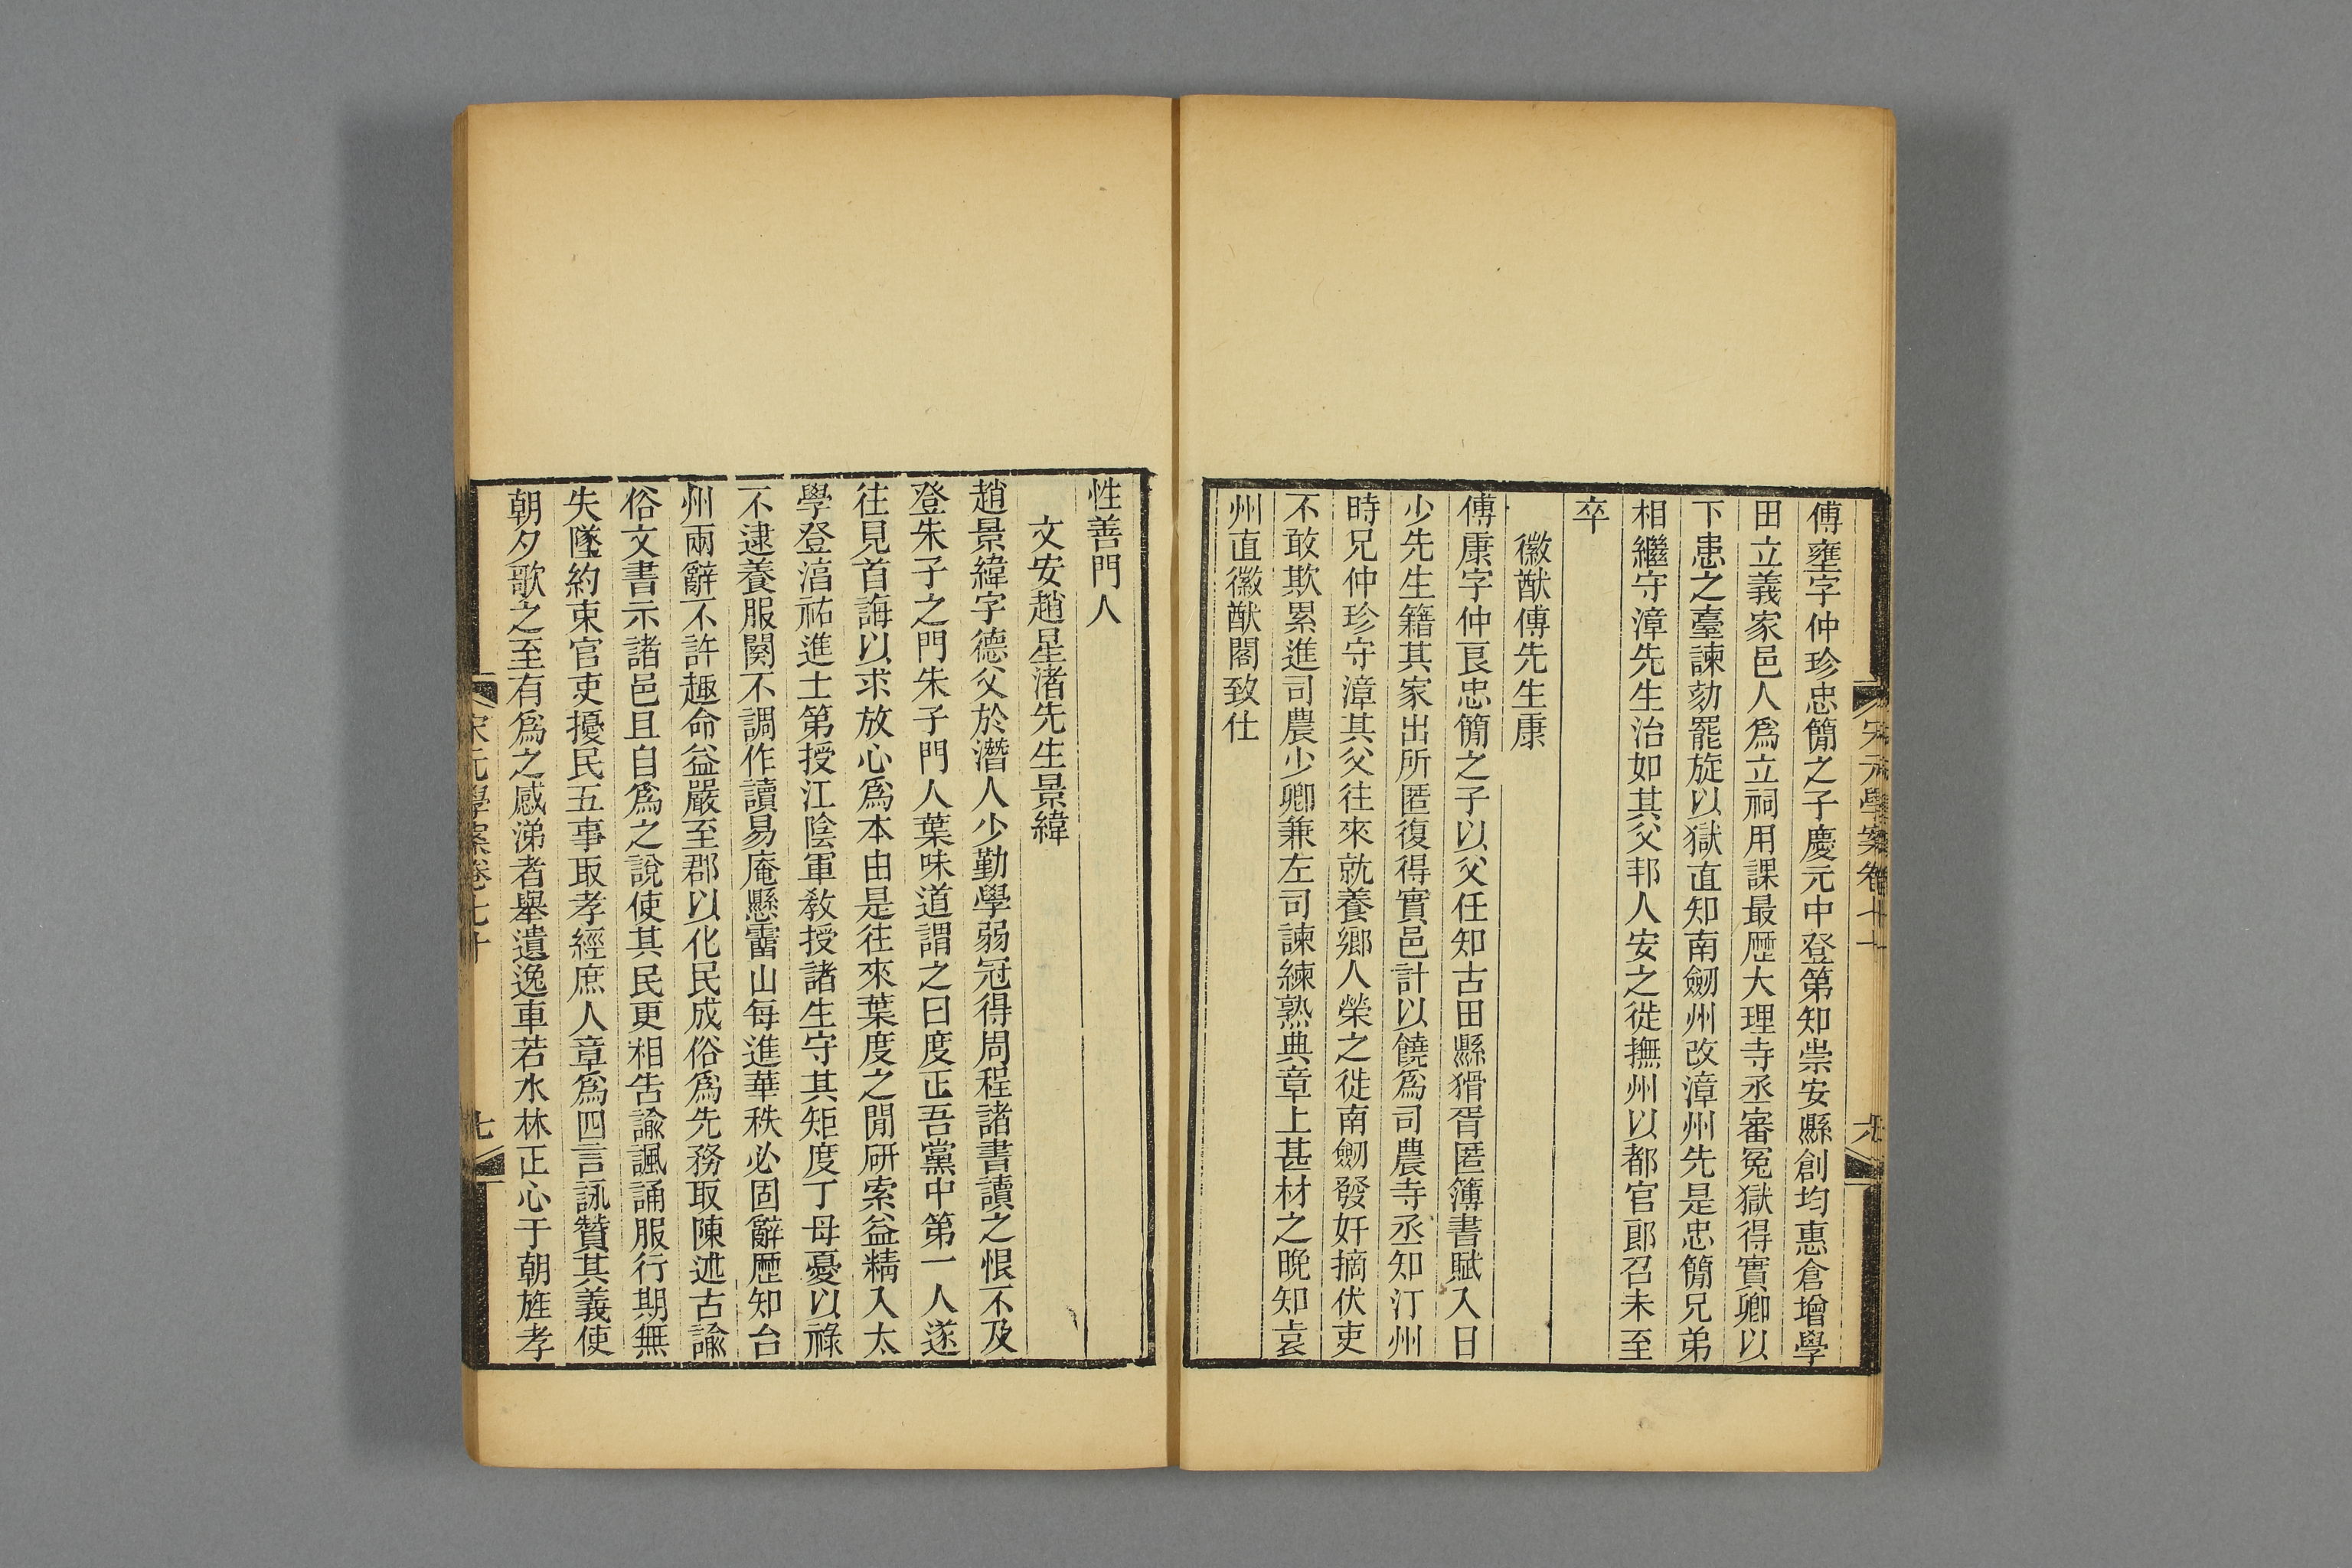 傅壅字仲珍忠簡之子慶元中登第知崇安縣創均惠倉增學
田立義家邑人爲立祠用課最歷大理寺丞審冤獄得實卿以
下患之臺諫劾罷旋以獄直知南劒州改漳州先是忠簡兄弟
相繼守漳先生治如其父邦人安之徙撫州以都官郎召未至
卒
徽猷傅先生康
傅康字仲良忠簡之子以父任知古田縣猾胥匿簿書賦入日
少先生籍其家出所匿復得實邑計以饒爲司農寺丞知汀州
時兄仲珍守漳其父往來就養鄉人榮之徙南劒發奸摘伏吏
不敢欺累進司農少卿兼左司諫練熟典章上甚材之晚知袁
州直徽猷閣致仕
性善門人
文安趙星渚先生景緯
趙景緯字德父於潛人少勤學弱冠得周程諸書讀之恨不及
登朱子之門朱子門人葉味道謂之曰度正吾黨中第一人遂
往見首誨以求放心爲本由是往來葉度之閒研索益精入太
學登湻祐進士第授江陰軍敎授諸生守其矩度丁母憂以祿
不逮養服闋不調作讀易庵懸霤山每進華秩必固辭歷知台
州兩辭不許趣命益嚴至郡以化民成俗爲先務取陳述古諭
俗文書示諸邑且自爲之說使其民更相告諭諷誦服行期無
失墜約束官吏擾民五事取孝經庶人章爲四言詠贊其義使
朝夕歌之至有爲之感涕者舉遺逸車若水林正心于朝旌孝
宋元學案卷七十
七